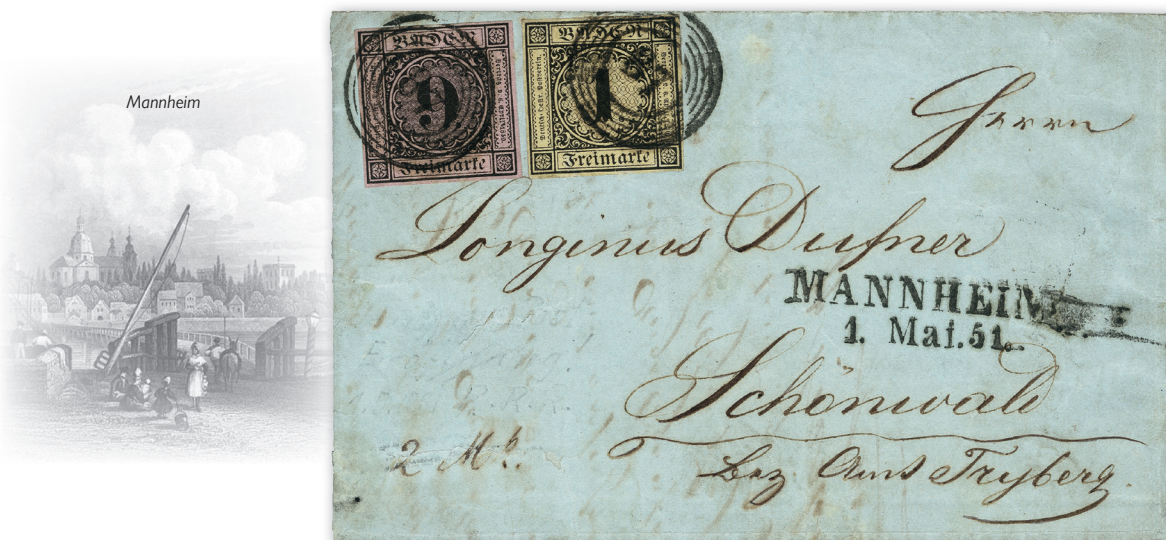 Mannheim
BADEN
9
Freimarke
BADEN
1
Freimarke
Herrn
Longinus Dufner
MANNHEIM
1. Mai. 51.
Schönwald
Bez Amt Tryberg.